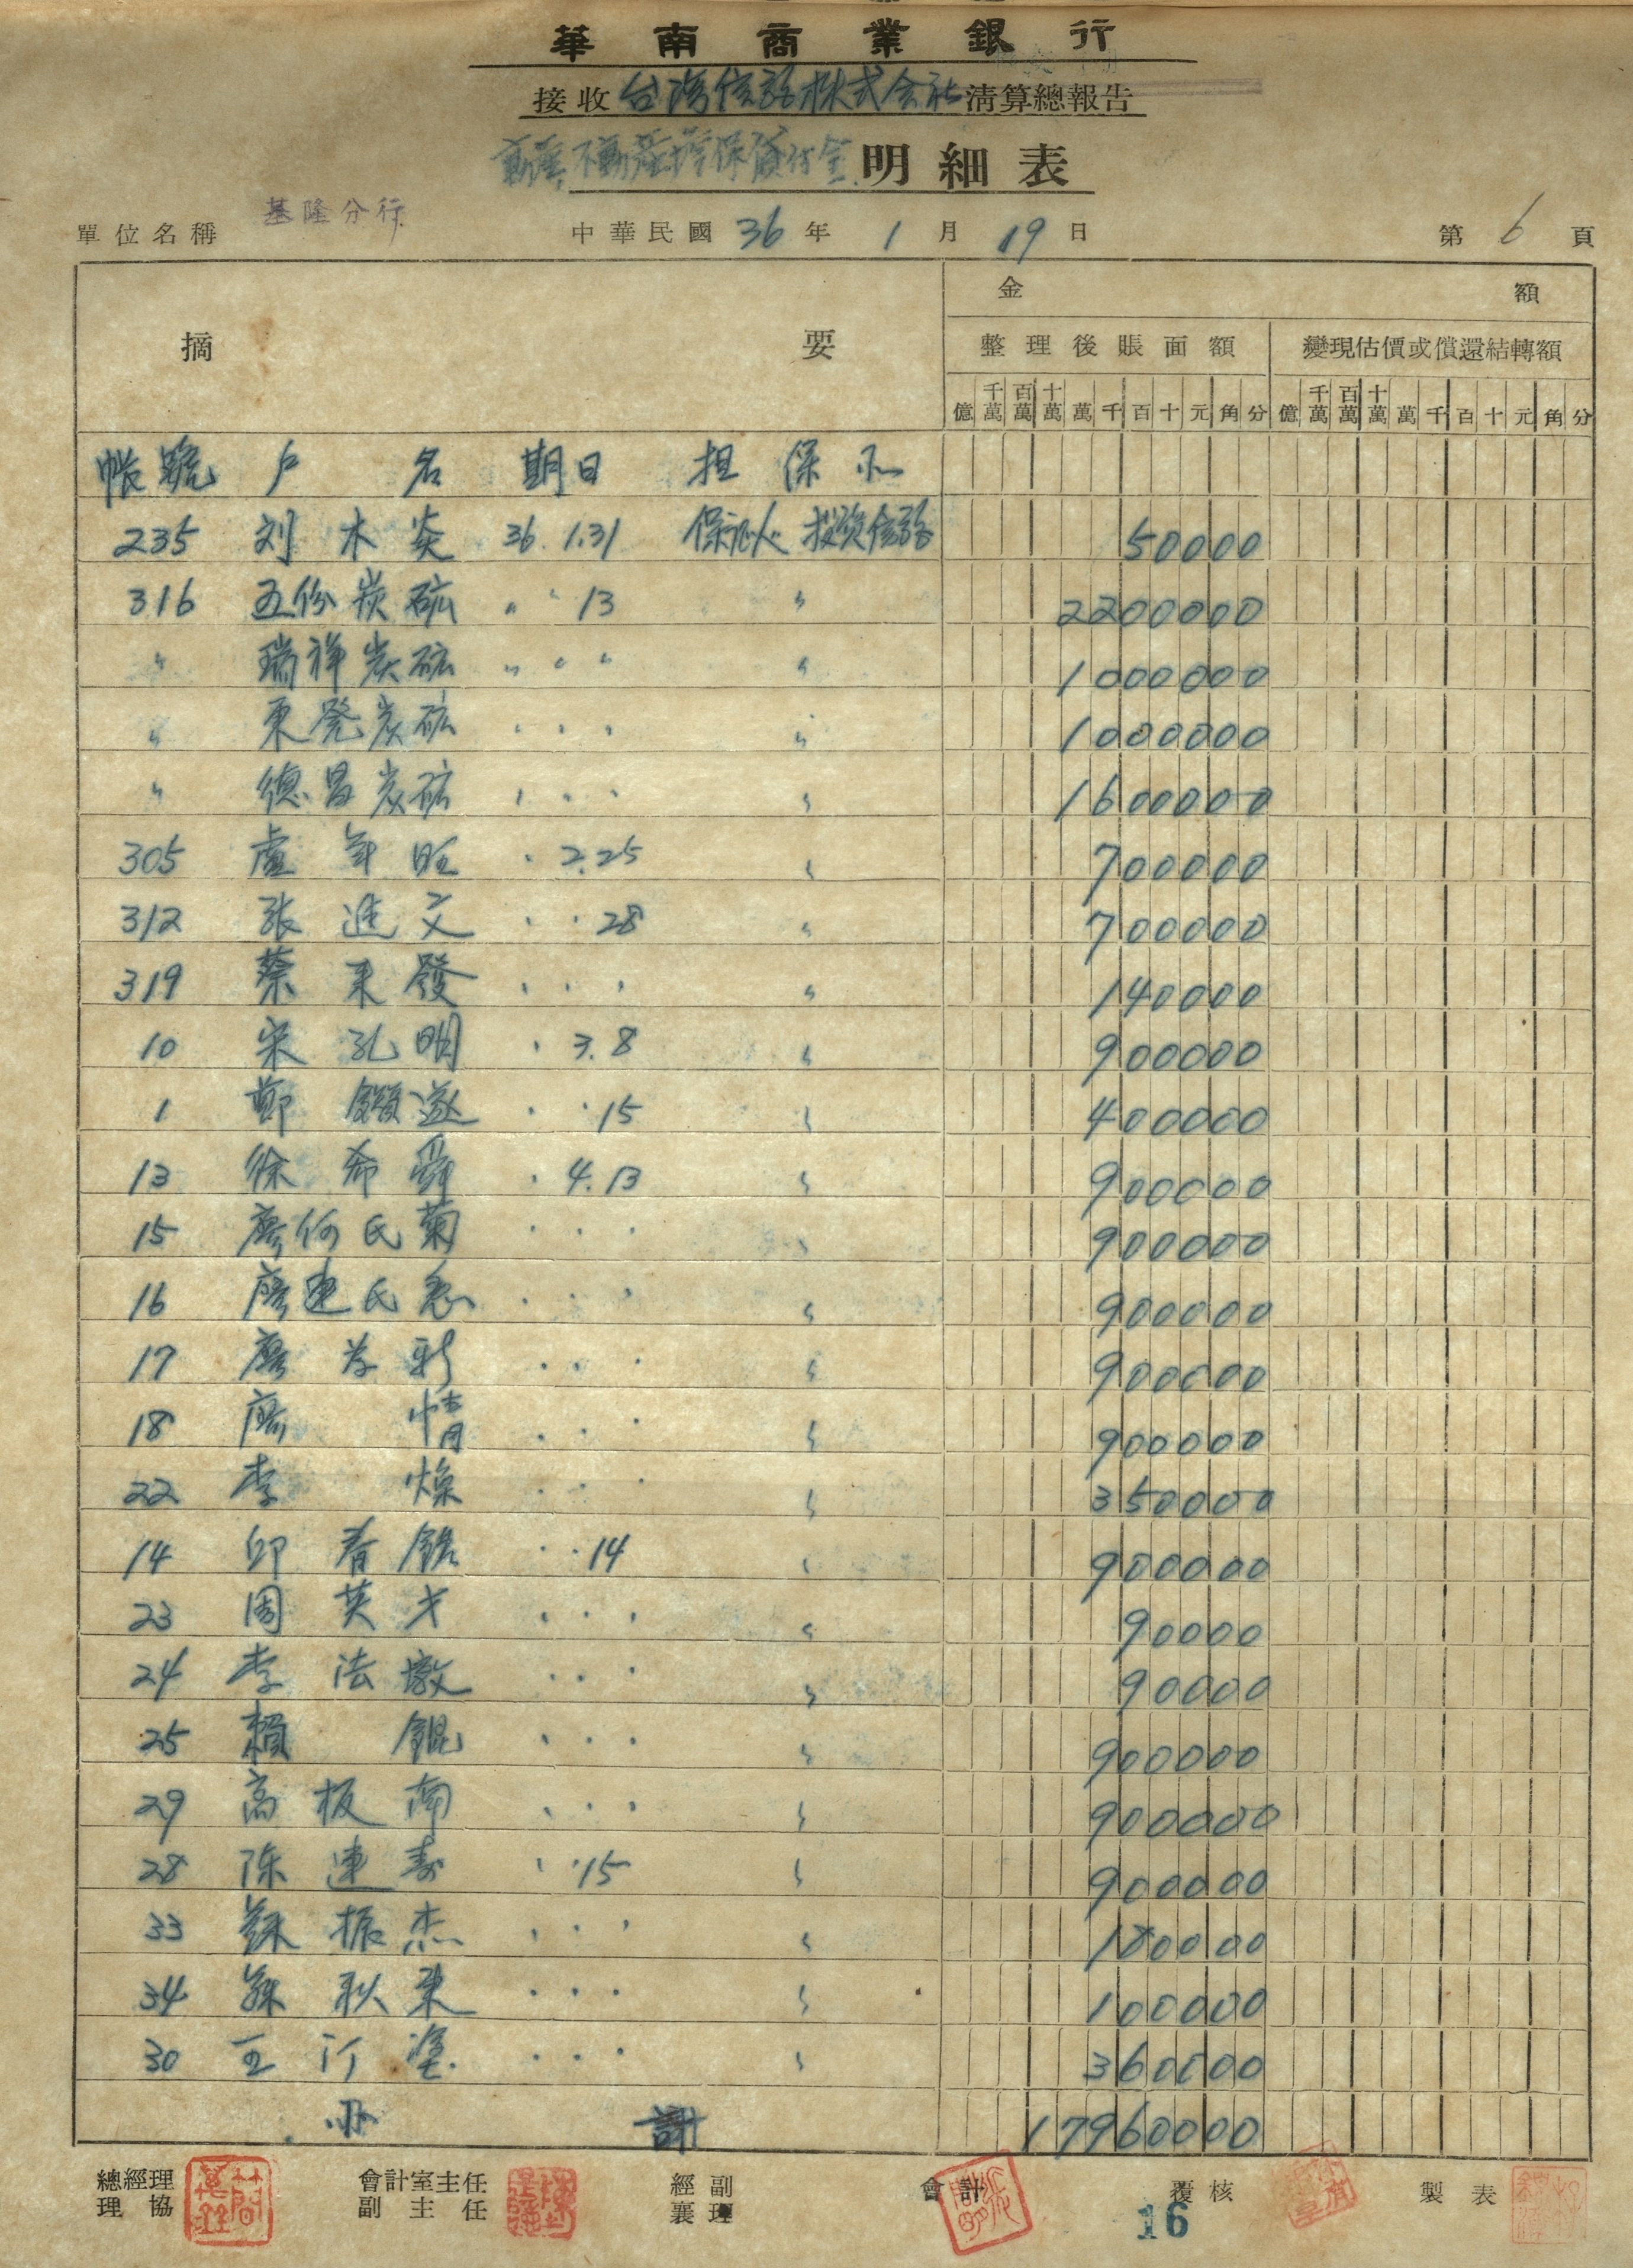 華南商業銀行
接收台灣信託株式会社清算總報告
動產不動產担保貸付金明細表
單位名稱 基隆分行 中華民國36年1月19日 第6頁
摘要 金額
整理後賬面額 變現估價或償還結轉額
億 千萬 百萬 十萬 萬 千 百 十 元 角 分 億 千萬 百萬 十萬 萬 千 百 十 元 角 分
帳號 戶名 期日 担保
235 刘木炎 36.1.31 保証人 投資信託 50000
316 五份炭砿 〃 〃 13 〃 2200000
〃 瑞祥炭砿 〃 〃 〃 〃 1000000
〃 東発炭砿 〃 〃 〃 〃 1000000
〃 德昌炭砿 〃 〃 〃 〃 1600000
305 盧年旺 〃 2.25 〃 700000
312 張進文 〃 〃 28 〃 700000
319 蔡来發 〃 〃 〃 〃 140000
10 宋孔明 〃 3.8 〃 900000
1 鄭 〃 〃 15 〃 400000
13 徐希舜 〃 4.13 〃 900000
15 廖何氏菊 〃 〃 〃 〃 900000
16 廖連氏 〃 〃 〃 〃 900000
17 廖 〃 〃 〃 〃 900000
18 廖情 〃 〃 〃 〃 900000
22 李煥 〃 〃 〃 〃 350000
14 邱春 〃 〃 14 〃 900000
23 周英才 〃 〃 〃 〃 90000
24 李法墩 〃 〃 〃 〃 90000
25 賴錕 〃 〃 〃 〃 900000
29 高板南 〃 〃 〃 〃 900000
28 陈連春 〃 〃 15 〃 900000
33 蘇振杰 〃 〃 〃 〃 180000
34 蘇秋東 〃 〃 〃 〃 100000
30 王汀塗 〃 〃 〃 〃 360000
小計 17960000
總經理 會計室主任 經副 會計 覆核 製表
理協 副主任 襄理
16